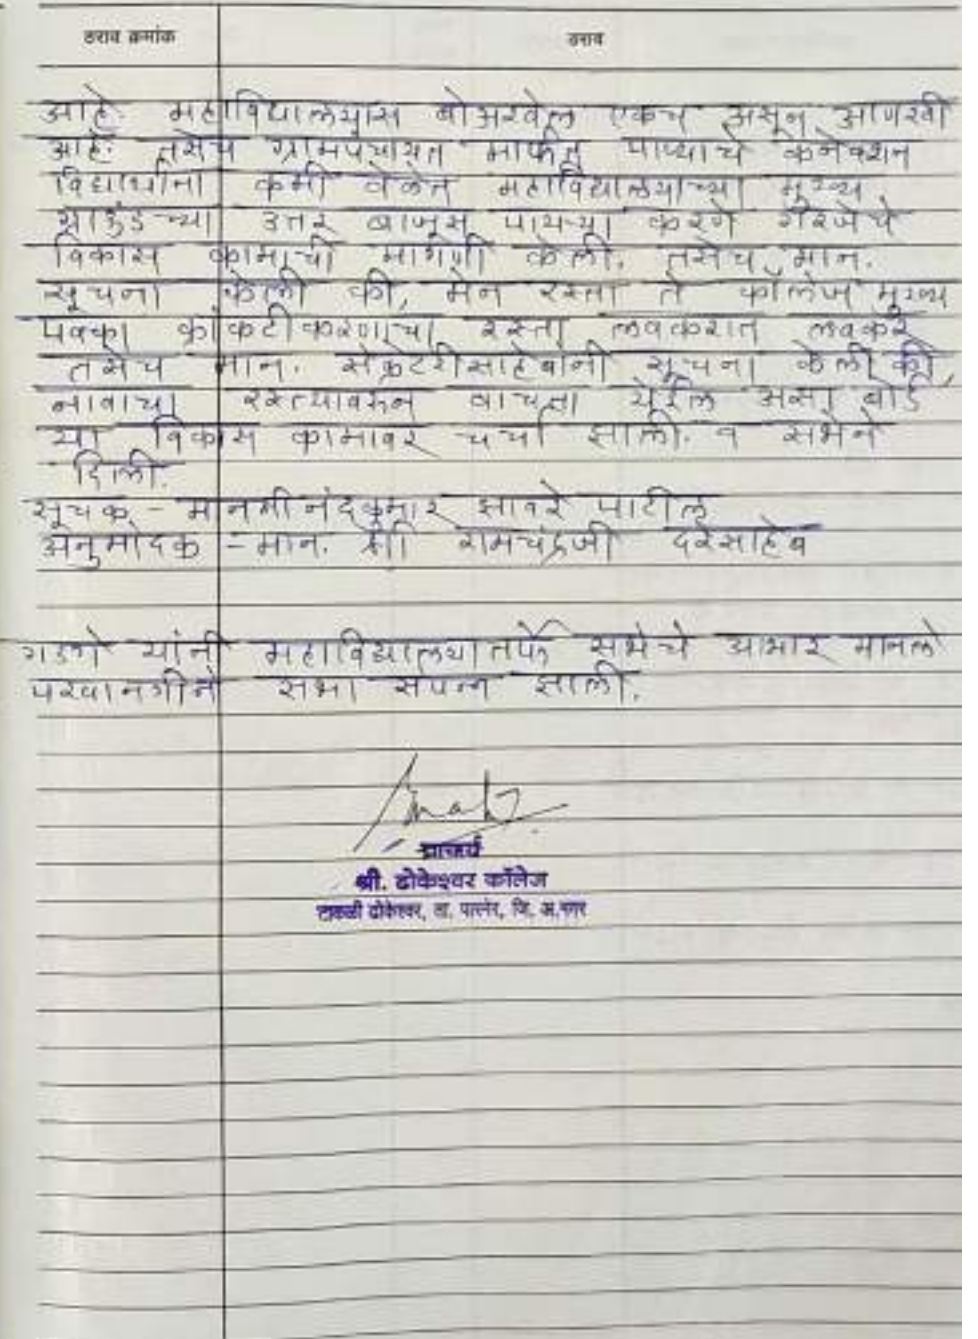 ठराव क्रमांक ठराव
आहे. महाविद्यालयास बोअरवेल एकच असून आणखी
आहे. तसेच ग्रामपंचायत मार्फत पाण्याचे कनेक्शन
विद्यार्थांना कमी वेळेत महाविद्यालयाच्या मुख्य
ग्राऊंडच्या उत्तर बाजूस पायऱ्या करणे गरजेचे
विकास कामाची मागणी केली. तसेच मान.
सूचना केली की, मेन रस्ता ते कॉलेज मुख्य
पक्का काँक्रटीकरणाचा रस्ता लवकरात लवकर
तसेच मान. सेक्रेटरीसाहेबांनी सूचना केली की,
नावाचा रस्त्यावरून वाचता येईल असा बोर्ड
या विकास कामावर चर्चा झाली. व सभेने
दिली.
सूचक - मा नंदकुमार झावरे पाटील
अनुमोदक - मान. श्री रामचंद्रजी दरेसाहेब
गडगे यांनी महाविद्यालया तर्फे सभेचे आभार मानले
परवानगीने सभा संपन्न झाली.
प्राचार्य
श्री. ढोकेश्वर कॉलेज
टाकळी ढोकेश्वर, ता. पारनेर, जि. अ.नगर